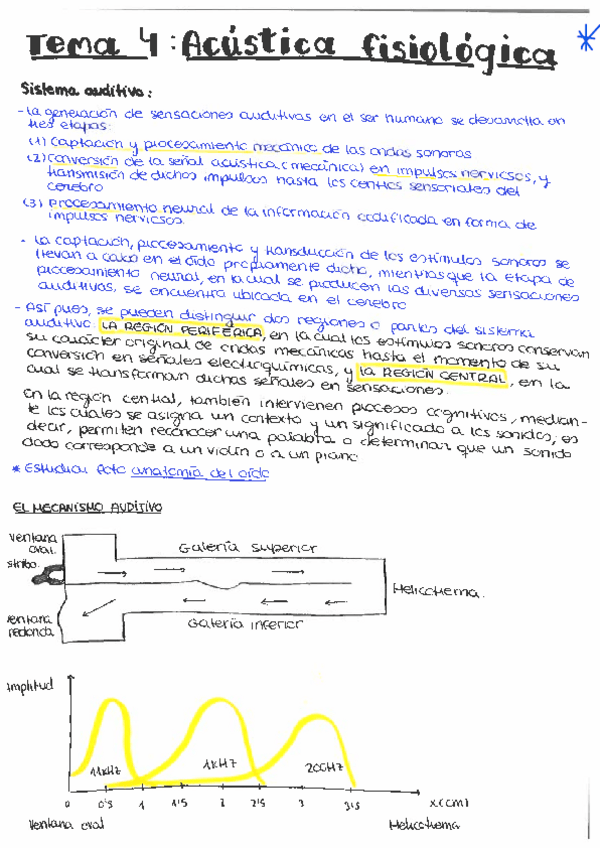 Tema 4: Acústica fisiológica
Sistema auditivo:
- La generación de sensaciones auditivas en el ser humano se desarrolla en
tres etapas:
(1) Captación y procesamiento mecánico de las ondas sonoras
(2) Conversión de la señal acústica (mecánica) en impulsos nerviosos, y
transmisión de dichos impulsos hasta los centros sensoriales del
cerebro
(3) Procesamiento neural de la información codificada en forma de
impulsos nerviosos.
- La captación, procesamiento y transducción de los estímulos sonoros se
llevan a cabo en el oído propiamente dicho, mientras que la etapa de
procesamiento neural, en la cual se producen las diversas sensaciones
auditivas, se encuentra ubicada en el cerebro
- Así pues, se pueden distinguir dos regiones o partes del sistema
auditivo: LA REGIÓN PERIFÉRICA, en la cual los estímulos sonoros conservan
su carácter original de ondas mecánicas hasta el momento de su
conversión en señales electroquímicas, y LA REGIÓN CENTRAL, en la
cual se transforman dichas señales en sensaciones.
En la región central, también intervienen procesos cognitivos, median-
te los cuales se asigna un contexto y un significado a los sonidos, es
decir, permiten reconocer una palabra o determinar que un sonido
dado corresponde a un violín o a un piano
* Estudiar foto anatomía del oído
EL MECANISMO AUDITIVO
ventana
oval
stribo
Galería superior
Helicotrema.
ventana
redonda
Galería inferior
amplitud
11kHz 1kHz 200Hz
0 0'5 1 1'5 2 2'5 3 3'5 x(cm)
Ventana oval Helicotrema